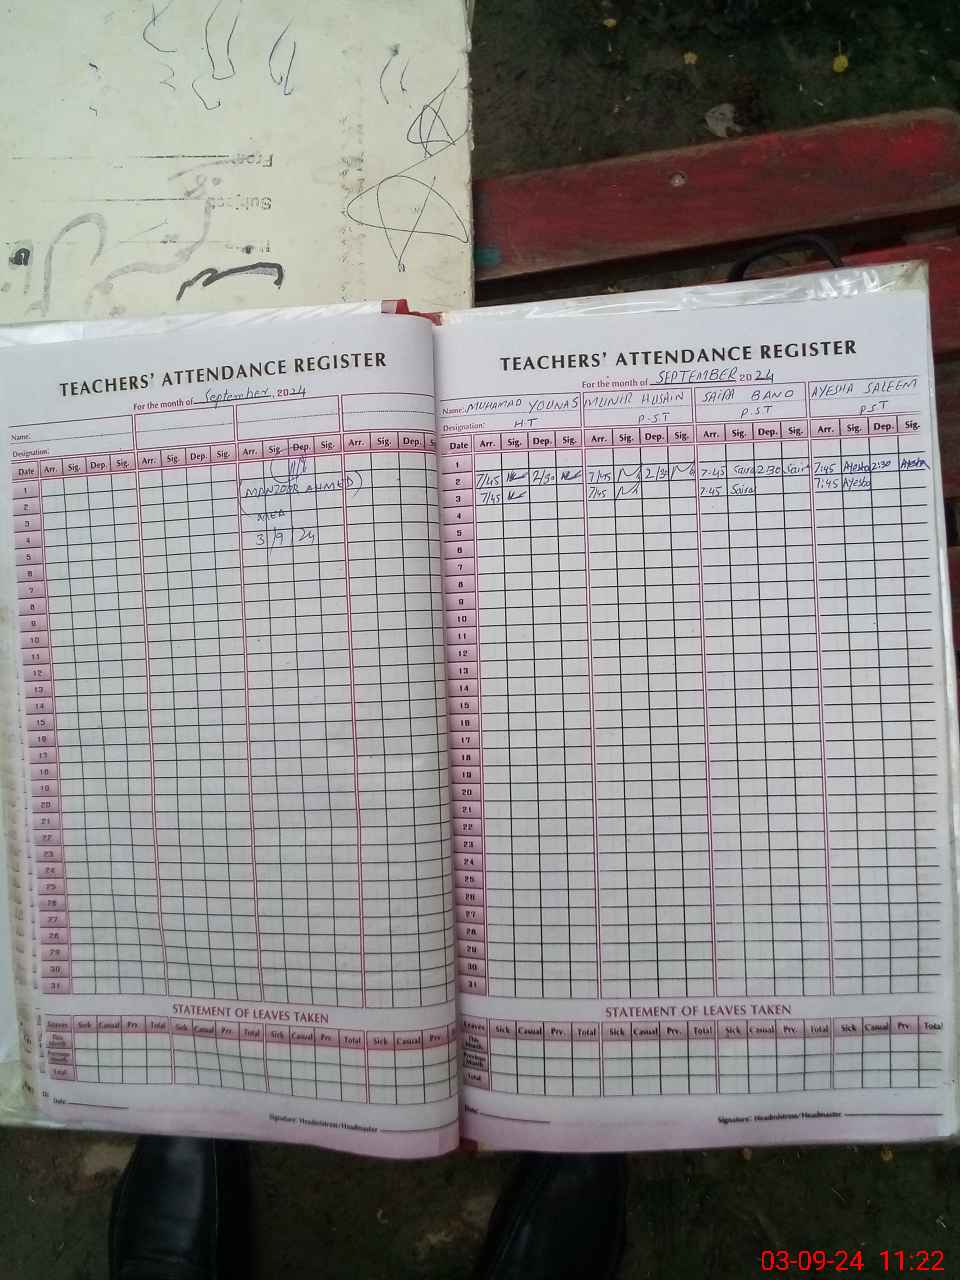 From
Subject
TEACHERS' ATTENDANCE REGISTER
For the month of September 2024
Name:
Designation:
Date Arr. Sig. Dep. Sig. Arr. Sig. Dep. Sig. Arr. Sig. Dep. Sig. Arr. Sig. Dep.
1
2 (MANZOOR AHMED)
3
4 3/9/24
5
6
7
8
9
10
11
12
13
14
15
16
17
18
19
20
21
22
23
24
25
26
27
28
29
30
31
STATEMENT OF LEAVES TAKEN
Leaves Sick Casual Prv. Total Sick Casual Prv. Total Sick Casual Prv. Total Sick Casual Prv.
This Month
Previous Month
Total
Date
Signature: Headmistress/Headmaster
TEACHERS' ATTENDANCE REGISTER
For the month of SEPTEMBER 2024
Name: MUHAMAD YOUNAS MUNIR HUSAIN SAIRA BANO AYESHA SALEEM
Designation: H T P.S.T P.S.T P.S.T
Date Arr. Sig. Dep. Sig. Arr. Sig. Dep. Sig. Arr. Sig. Dep. Sig. Arr. Sig. Dep. Sig.
1
2 7/45 2/30 7/45 2/30 7:45 Saira 2:30 Saira 7:45 Ayesha 2:30 Ayesha
3 7/45 7/45 7:45 Saira 7:45 Ayesha
4
5
6
7
8
9
10
11
12
13
14
15
16
17
18
19
20
21
22
23
24
25
26
27
28
29
30
31
STATEMENT OF LEAVES TAKEN
Leaves Sick Casual Prv. Total Sick Casual Prv. Total Sick Casual Prv. Total Sick Casual Prv. Total
This Month
Previous Month
Total
Date:
Signature: Headmistress/Headmaster
03-09-24 11:22